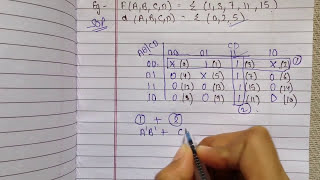 Eg - F(A,B,C,D) = Σ (1, 3, 7, 11, 15)
d (A,B,C,D) = Σ (0, 2, 5)
SOP
CD
AB\CD 00 01 11 10
00 X (0) 1 (1) 1 (3) X (2) ①
01 0 (4) X (5) 1 (7) 0 (6)
11 0 (12) 0 (13) 1 (15) 0 (14)
10 0 (8) 0 (9) 1 (11) 0 (10)
②
① + ②
A'B' + C